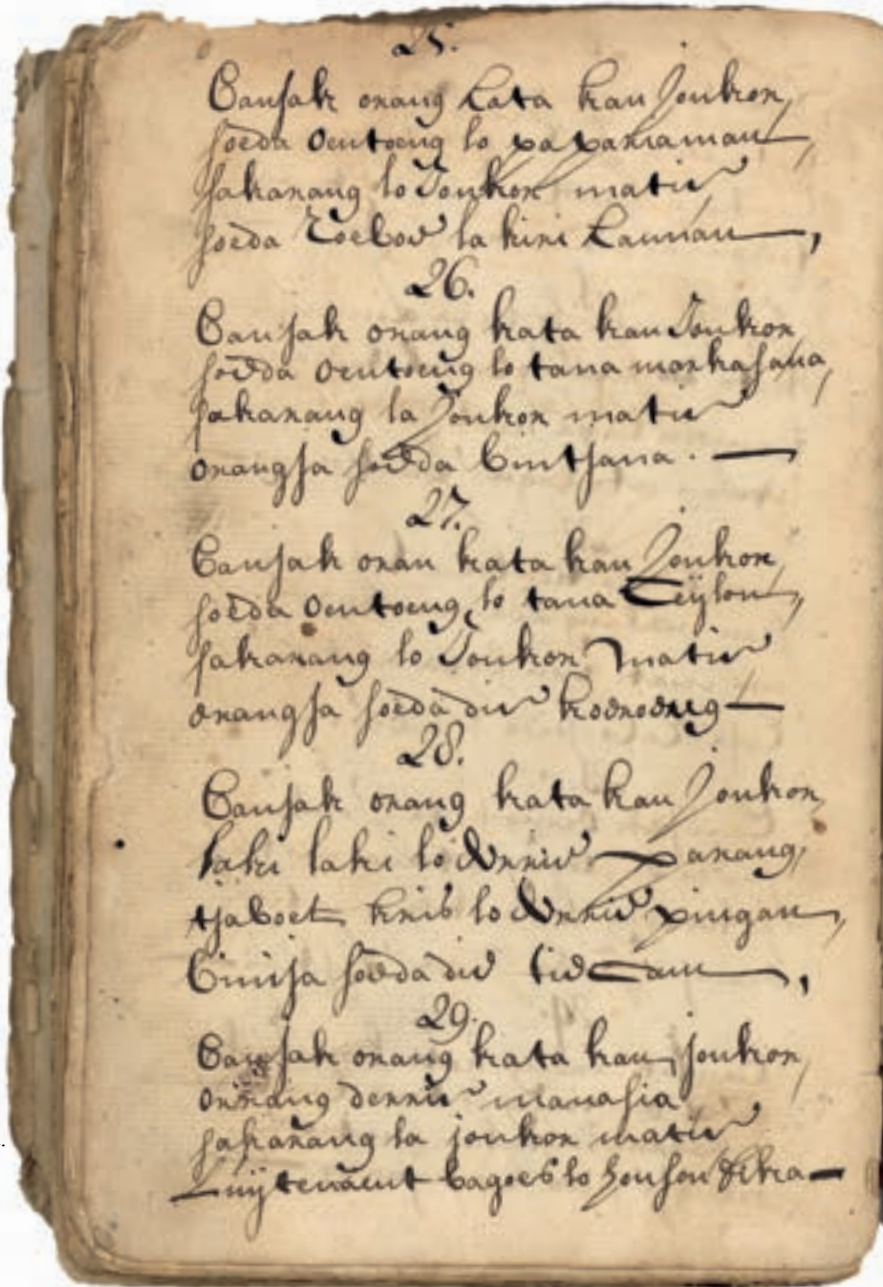 25.
Bansak orang kata kan Jonkor,
soeda oentoeng lo papariaman,
sakarang lo Jonkor matie
soeda la kini
26.
Bansak orang kata kan Jonkor
soeda oentoeng lo tana markasana,
sakarang la Jonkor matie
orangsa soeda bintsana. —
27.
Bansak oran kata kan Jonkor
soeda oentoeng lo tana Ceijlon,
sakarang lo Jonkor matie
orangsa soeda die koeroeng —
28.
Bansak orang kata kan Jonkor,
laki laki lo derrie parang,
tjaboet kris lo derrie pingan,
binisa soeda die ticcam,
29.
Bansak orang kata kan jonkor,
orrang derrie manasia
sakarang la jonkor matie
Luijtenant bagoes lo